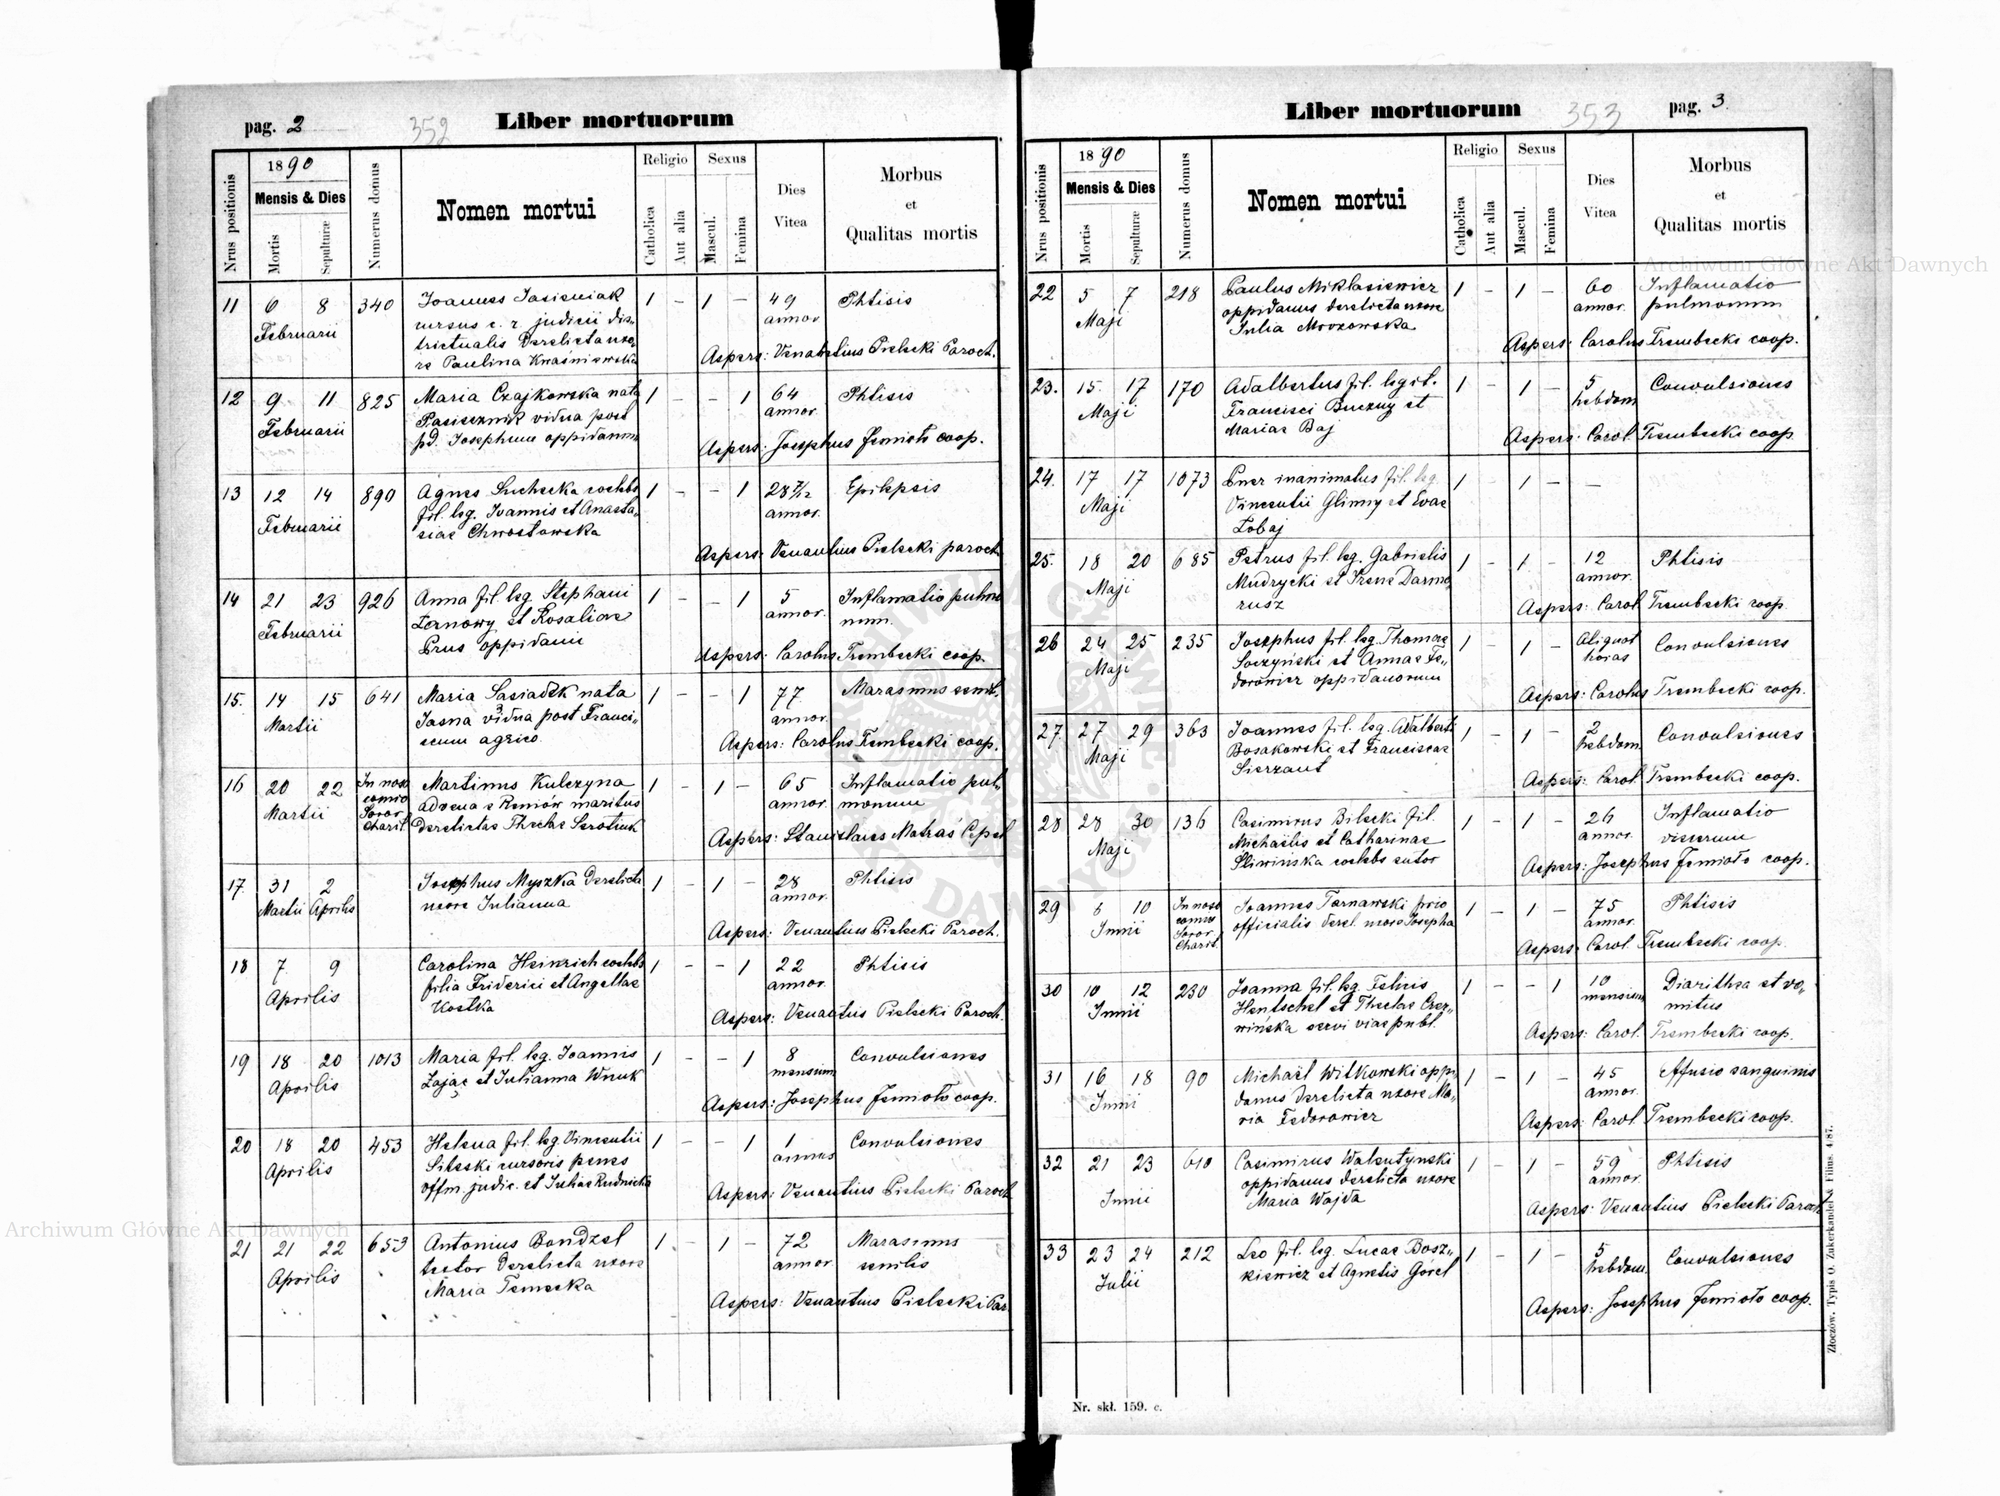 pag. 2
352
Liber mortuorum
Nrus positionis
1890
Mensis & Dies
Mortis
Sepulturæ
Numerus domus
Nomen mortui
Religio
Catholica
Aut alia
Sexus
Mascul.
Femina
Dies
Vitea
Morbus
et
Qualitas mortis
11 6 8 340 Joannes Jasieniak 1 – 1 – 49 Phtisis
Februarii cursus c. r. judicii dis- annor
trictualis derelicta uxo-
re Paulina Kwaśniewska Aspers: Venantius Pielecki Paroch.
12 9 11 825 Maria Czajkowska nata 1 – – 1 64 Phtisis
Februarii Pasiecznik vidua post annor.
pd. Josephum oppidanum Aspers: Josephus Femioto coop.
13 12 14 890 Agnes Suchecka coelebs 1 – – 1 28 7/12 Epilepsis
Februarii fil. leg. Joannis et Anasta- annor.
siae Chwostowska
Aspers: Venantius Pielecki paroch
14 21 23 926 Anna fil. leg. Stephani 1 – – 1 5 Inflamatio pulmo
Februarii et Rosaliae annor. num.
Prus oppidani Aspers: Carolus Trembecki coop.
15. 14 15 641 Maria Sasiadek nata 1 – – 1 77 Marasmus senil.
Martii Jasna vidua post Franci- annor.
scum agrico. Aspers: Carolus Trembecki coop.
16 20 22 In noso Martinus Kulczyna 1 – 1 – 65 Inflamatio pul-
Martii comio advena e Reniów maritus annor. monum
Soror. Charit. derelictae Theclae Aspers: Stanislaus Matras
17. 31 2 Josephus Myszka derelicta 1 – 1 – 28 Phtisis
Martii Aprilis uxore Julianna annor.
Aspers: Venantius Pielecki Paroch.
18 7 9 Carolina Heinrich coelebs 1 – – 1 22 Phtisis
Aprilis filia Friderici et Angellae annor.
Kostka Aspers: Venantius Pielecki Paroch.
19 18 20 1013 Maria fil. leg. Joannis 1 – – 1 8 Convulsiones
Aprilis Zając et Julianna Wnuk mensium
Aspers: Josephus Femioto coop.
20 18 20 453 Helena fil. leg. Vincentii 1 – – 1 1 Convulsiones
Aprilis Siteski cursoris penes annus
offm. judic. et Juliae Rudnicka Aspers: Venantius Pielecki Paroch
21 21 22 653 Antonius Bondzel 1 – 1 – 72 Marasmus
Aprilis tector derelicta uxore annor. senilis
Maria Temecka
Aspers: Venantius Pielecki Par.
Liber mortuorum
353
pag. 3
Nrus positionis
1890
Mensis & Dies
Mortis
Sepulturæ
Numerus domus
Nomen mortui
Religio
Catholica
Aut alia
Sexus
Mascul.
Femina
Dies
Vitea
Morbus
et
Qualitas mortis
22 5 7 218 Paulus Miklasiewicz 1 – 1 – 60 Inflamatio
Maji oppidanus derelicta uxore annor. pulmonum
Julia Mrozowska Aspers: Carolus Trembecki coop.
23. 15. 17 170 Adalbertus fil. legit. 1 – 1 – 5 Convulsiones
Maji Francisci Buczny et hebdom
Mariae Baj Aspers: Carol. Trembecki coop.
24. 17 17 1073 Puer inanimatus fil. leg. 1 1 – –
Maji Vincentii Glinny et Evae
Łobaj
25. 18 20 685 Petrus fil. leg. Gabrielis 1 – 1 – 12 Phtisis
Maji Mudrycki et Irene Darmo annor.
rusz Aspers: Carol. Trembecki coop.
26 24 25 235 Josephus fil. leg. Thomae 1 – 1 – Aliquot Convulsiones
Maji Soczyński et Annae Fe- horas
dorowicz oppidanorum Aspers: Carolus Trembecki coop.
27. 27 29 363 Joannes fil. leg. Adalberti 1 – 1 – 2 Convulsiones
Maji Bosakowski et Franciscae hebdom.
Sierzant Aspers: Carol. Trembecki coop.
28 28 30 136 Casimirus Bilecki fil. 1 – 1 – 26 Inflamatio
Maji Michaëlis et Catharinae annor. viscerum
Śliwińska coelebs sutor Aspers: Josephus Femioto coop.
29 8 10 In noso Joannes Tarnawski prio 1 – 1 – 75 Phtisis
Junii comio officialis derel. uxore Josepha annor.
Soror. Charit. Aspers: Carol. Trembecki coop.
30 10 12 230 Joanna fil. leg. Felicis 1 – – 1 10 Diarithea et vo-
Junii Hentschel et Theclae Czer- mensium mitus
wińska servi viae publ. Aspers: Carol. Trembecki coop.
31 16 18 90 Michaël Witkowski oppi- 1 – 1 – 45 Effusio sanguinis
Junii danus derelicta uxore Ma- annor.
ria Fedorowicz Aspers: Carol. Trembecki coop.
32 21 23 610 Casimirus Walentynski 1 – 1 – 59 Phtisis
Junii oppidanus derelicta uxore annor.
Maria Wajda Aspers: Venantius Pielecki Paroch
33 23 24 212 Leo fil. leg. Lucae Bosz- 1 – 1 – 5 Convulsiones
Julii kiewicz et Agnetis Górel hebdom.
Aspers: Josephus Femioto coop.
Nr. skł. 159. c.
Złoczów. Typis O. Zukerkandel & Filius. 4/87.
Archiwum Główne Akt Dawnych
Archiwum Główne Akt Dawnych